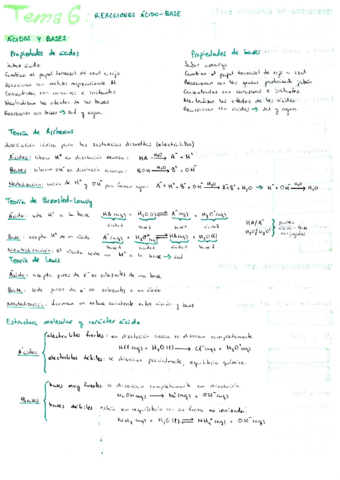 Tema 6: REACCIONES ÁCIDO-BASE
ÁCIDOS Y BASES
Propiedades de ácidos
Sabor ácido
Cambian el papel tornasol de azul a rojo
Reaccionan con metales desprendiendo H
Concentradas son corrosivos e irritantes
Neutralizan los efectos de las bases
Reaccionan con bases → sal y agua
Propiedades de bases
Sabor amargo
Cambian el papel tornasol de rojo a azul
Reaccionan con las grasas produciendo jabón
Concentradas son corrosivas e irritantes
Neutralizan los efectos de los ácidos
Reaccionan con ácidos → sal y agua
Teoría de Arrhenius
disociación iónica para las sustancias disueltas (electrolitos)
Ácidos: liberan H⁺ en disolución acuosa: HA —H₂O→ A⁻ + H⁺
Bases: liberan OH⁻ en disolución acuosa: BOH —H₂O→ B⁺ + OH⁻
Neutralización: unión de H⁺ y OH⁻ para formar agua: A⁻ + H⁺ + B⁺ + OH⁻ —H₂O→ A⁻B⁺ + H₂O → H⁺ + OH⁻ —H₂O→ H₂O
Teoría de Brønsted-Lowry
Ácido: cede H⁺ a la base HA(aq) + H₂O(l) ⇌ A⁻(aq) + H₃O⁺(aq)
ácido base base ácido
HA/A⁻ H₃O⁺/H₂O pares ácido-base conjugados
Base: acepta H⁺ de un ácido A⁻(aq) + H₃O⁺ ⇌ HA(aq) + H₂O(l)
base ácido ácido base
Neutralización: el ácido cede un H⁺ a la base → sal
Teoría de Lewis
Ácido: acepta pares de e⁻ no enlazantes de una base
Base: cede pares de e⁻ no enlazantes a un ácido
Neutralización: forman un enlace covalente entre ácido y base
Estructura molecular y carácter ácido
Ácidos
electrolitos fuertes: en disolución acuosa se disocian completamente
HCl(aq) + H₂O(l) → Cl⁻(aq) + H₃O⁺(aq)
electrolitos débiles: se disocian parcialmente, equilibrio químico.
Bases
bases muy fuertes: se disocian completamente en disolución
NaOH(aq) → Na⁺(aq) + OH⁻(aq)
bases débiles: están en equilibrio con su forma no ionizada.
NH₃(aq) + H₂O(l) ⇌ NH₄⁺(aq) + OH⁻(aq)